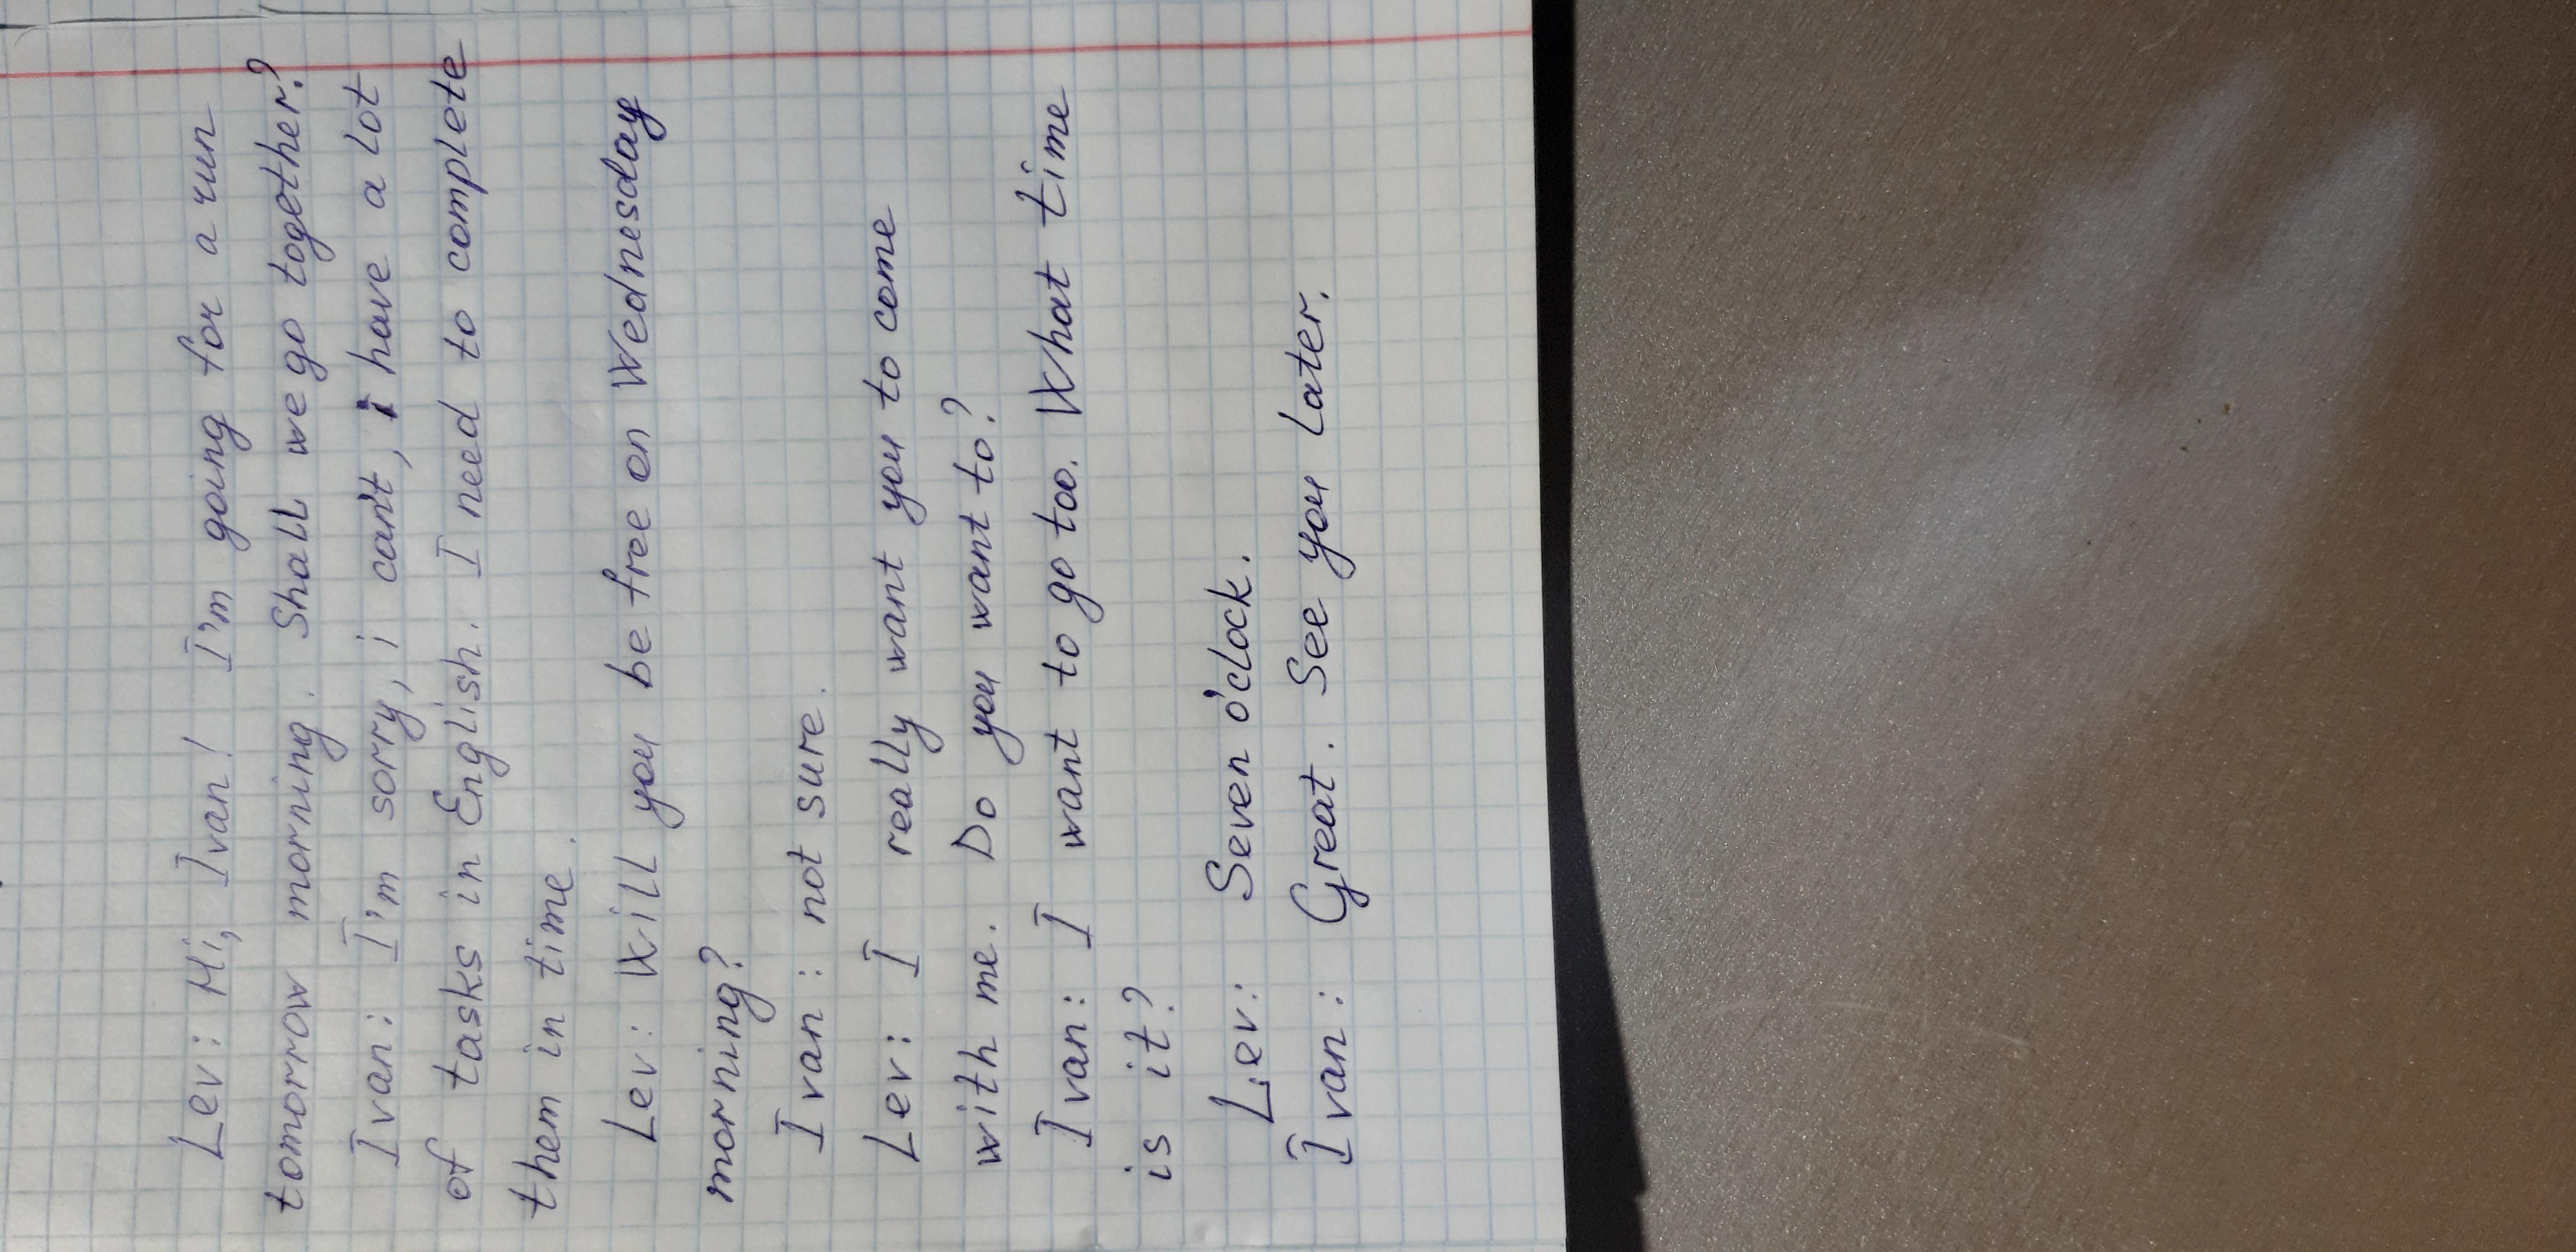 Lev: Hi, Ivan! I'm going for a run
tomorrow morning. Shall we go together?
Ivan: I'm sorry, i can't, i have a lot
of tasks in English. I need to complete
them in time.
Lev: Will you be free on Wednesday
morning?
Ivan: not sure.
Lev: I really want you to come
with me. Do you want to?
Ivan: I want to go too. What time
is it?
Lev: Seven o'clock.
Ivan: Great. See you later.